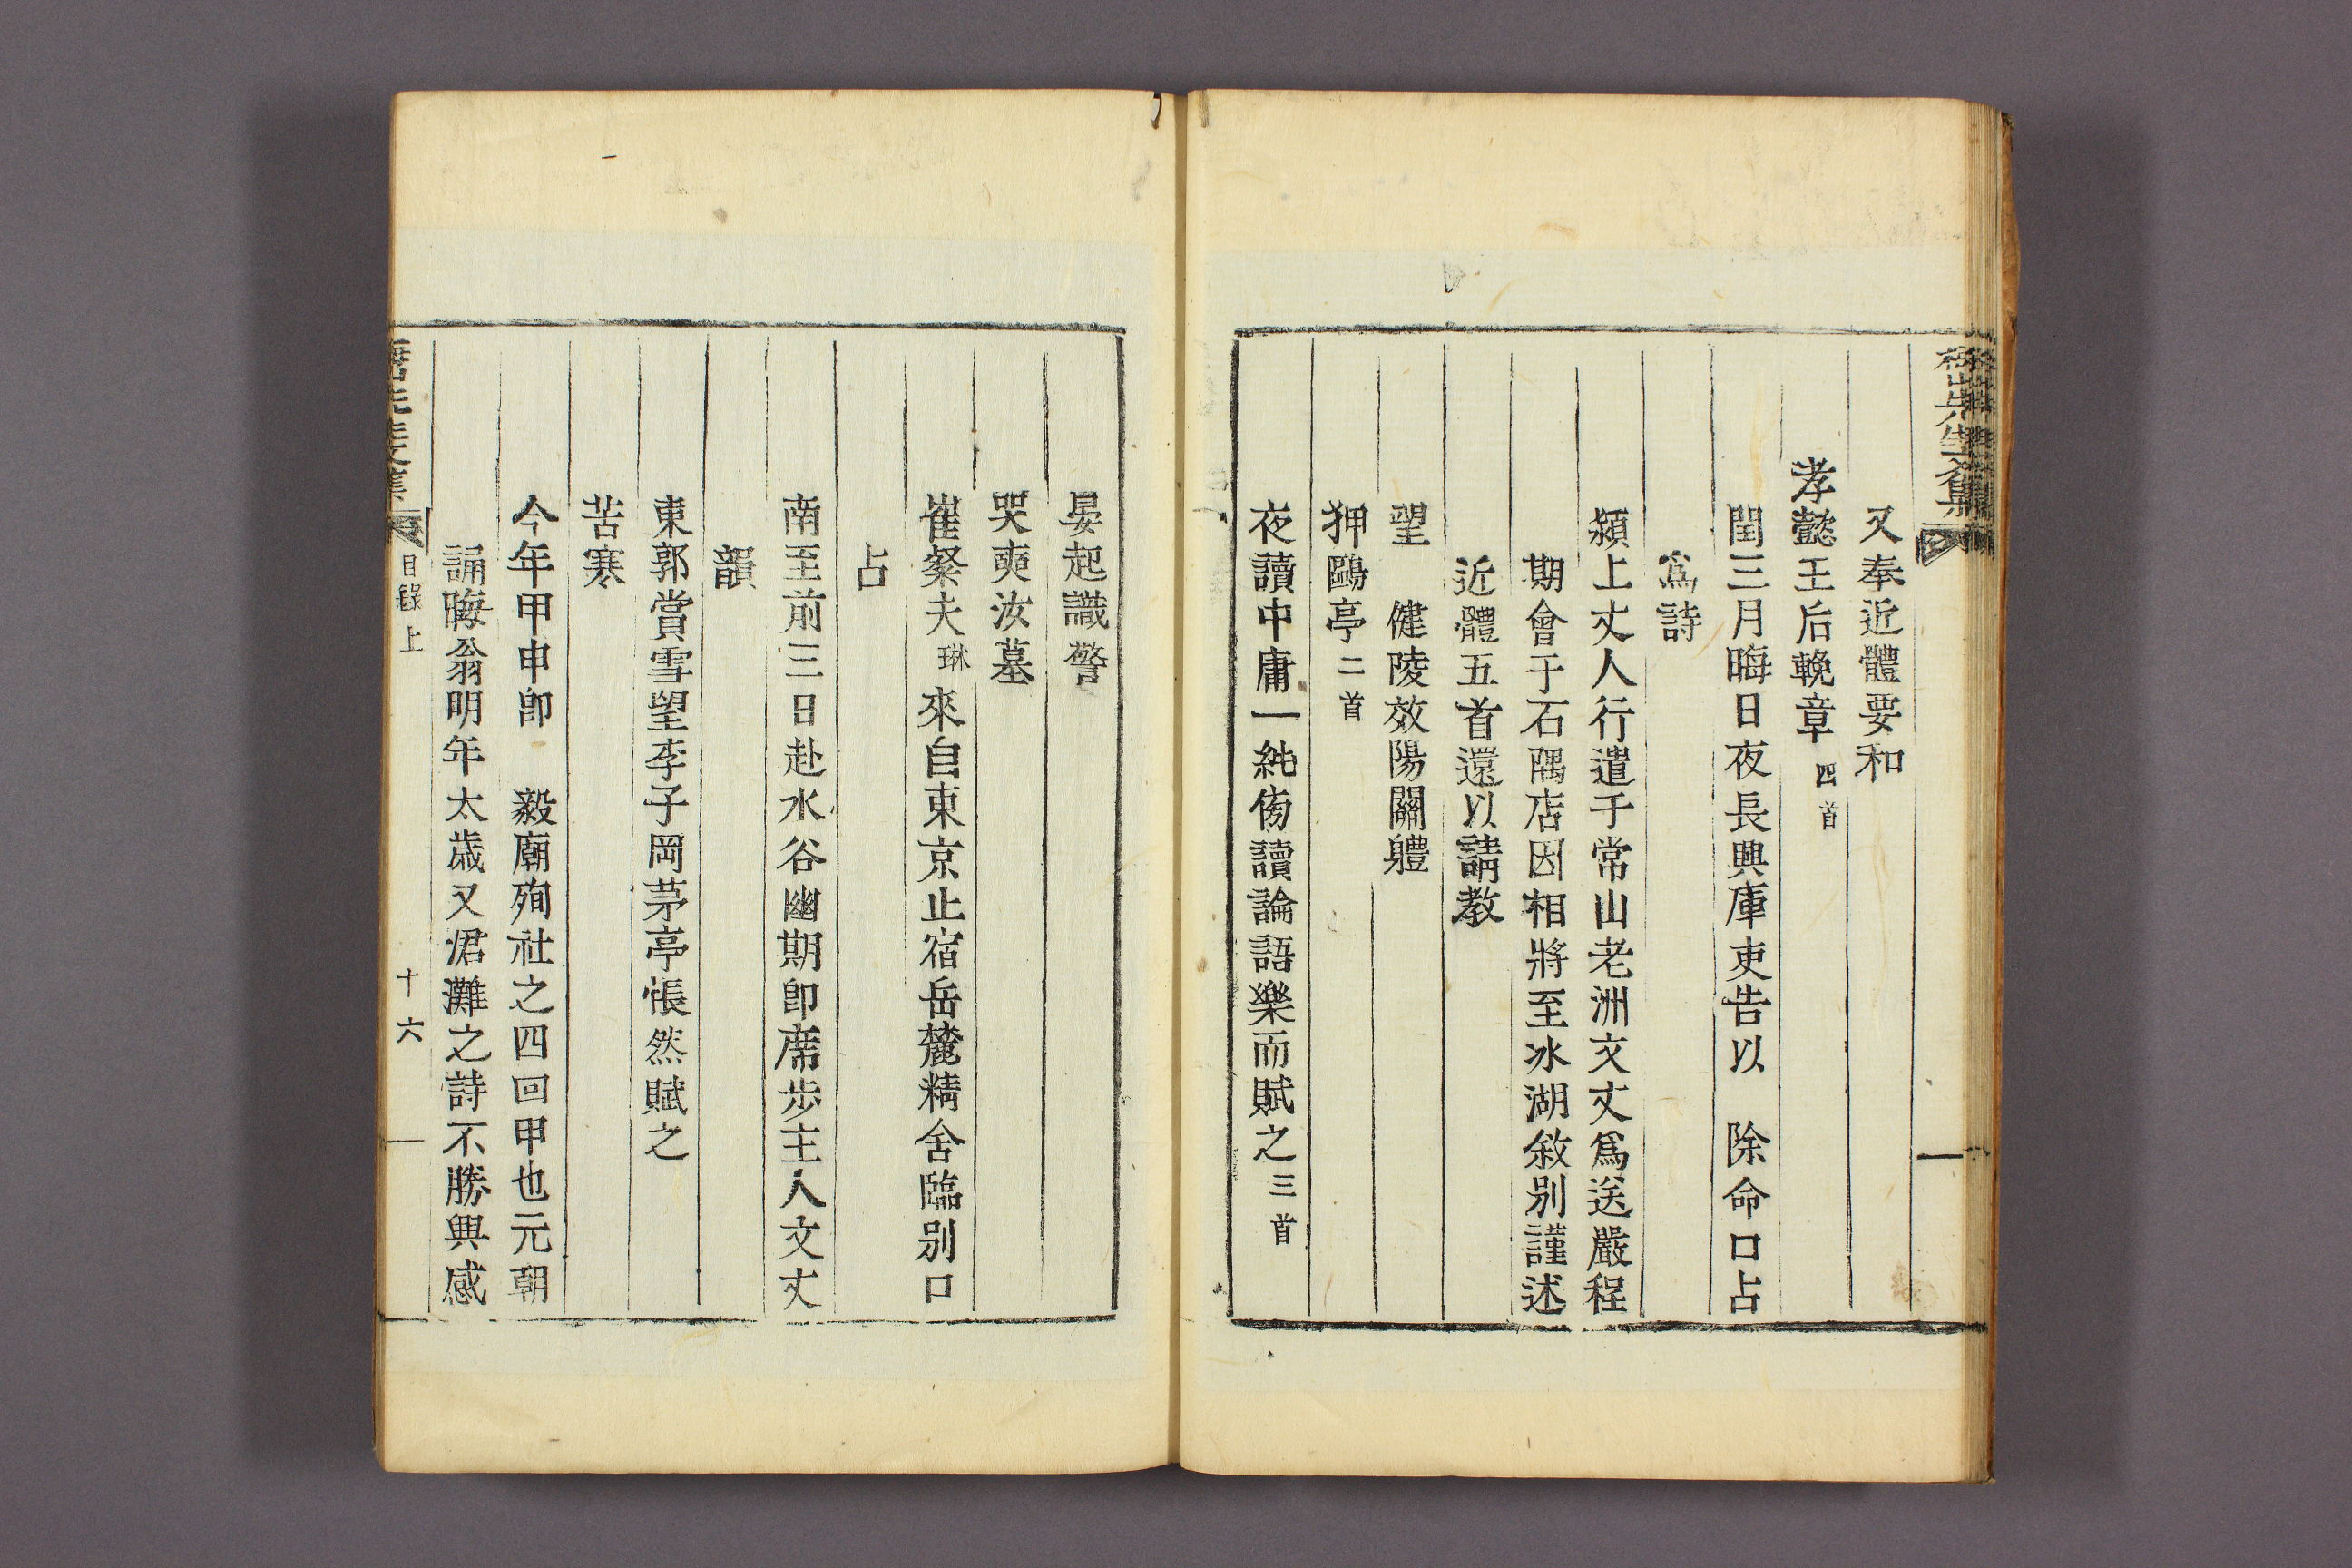 又奉近體要和
孝懿王后輓章 四首
閏三月晦日夜長興庫吏告以 除命口占
爲詩
潁上丈人行遣于常山老洲文丈爲送嚴程
期會于石隅店因相將至氷湖敘別謹述
近體五首還以請教
望 健陵效陽關體
狎鷗亭 二首
夜讀中庸一純傍讀論語樂而賦之 三首
晏起識警
哭奭汝墓
崔粲夫 琳 來自東京止宿岳麓精舍臨別口
占
南至前三日赴水谷幽期卽席步主人文丈
韻
東郭賞雪望李子岡茅亭悵然賦之
苦寒
今年甲申卽 毅廟殉社之四回甲也元朝
誦晦翁明年太歲又涒灘之詩不勝興感
目錄上 十六